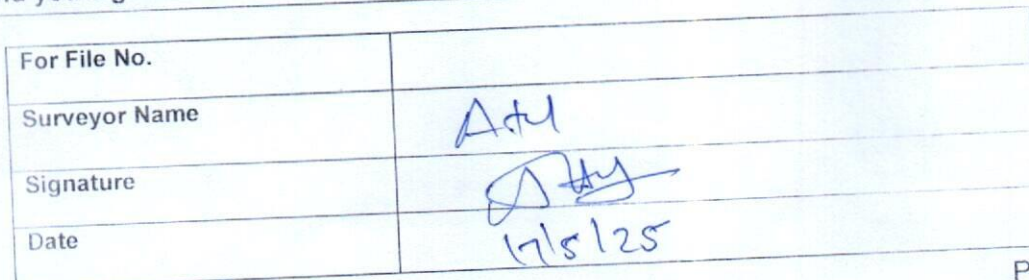 For File No.
Surveyor Name Atul
Signature
Date 17/5/25